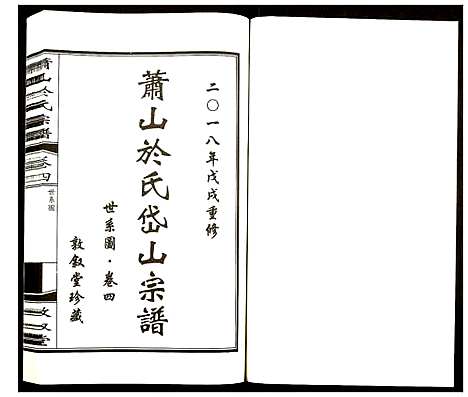 二〇一八年戊戌重修
蕭山於氏岱山宗譜
世系圖·卷四
敦叙堂珍藏
蕭山於氏宗譜
卷四
世系圖
敦叙堂